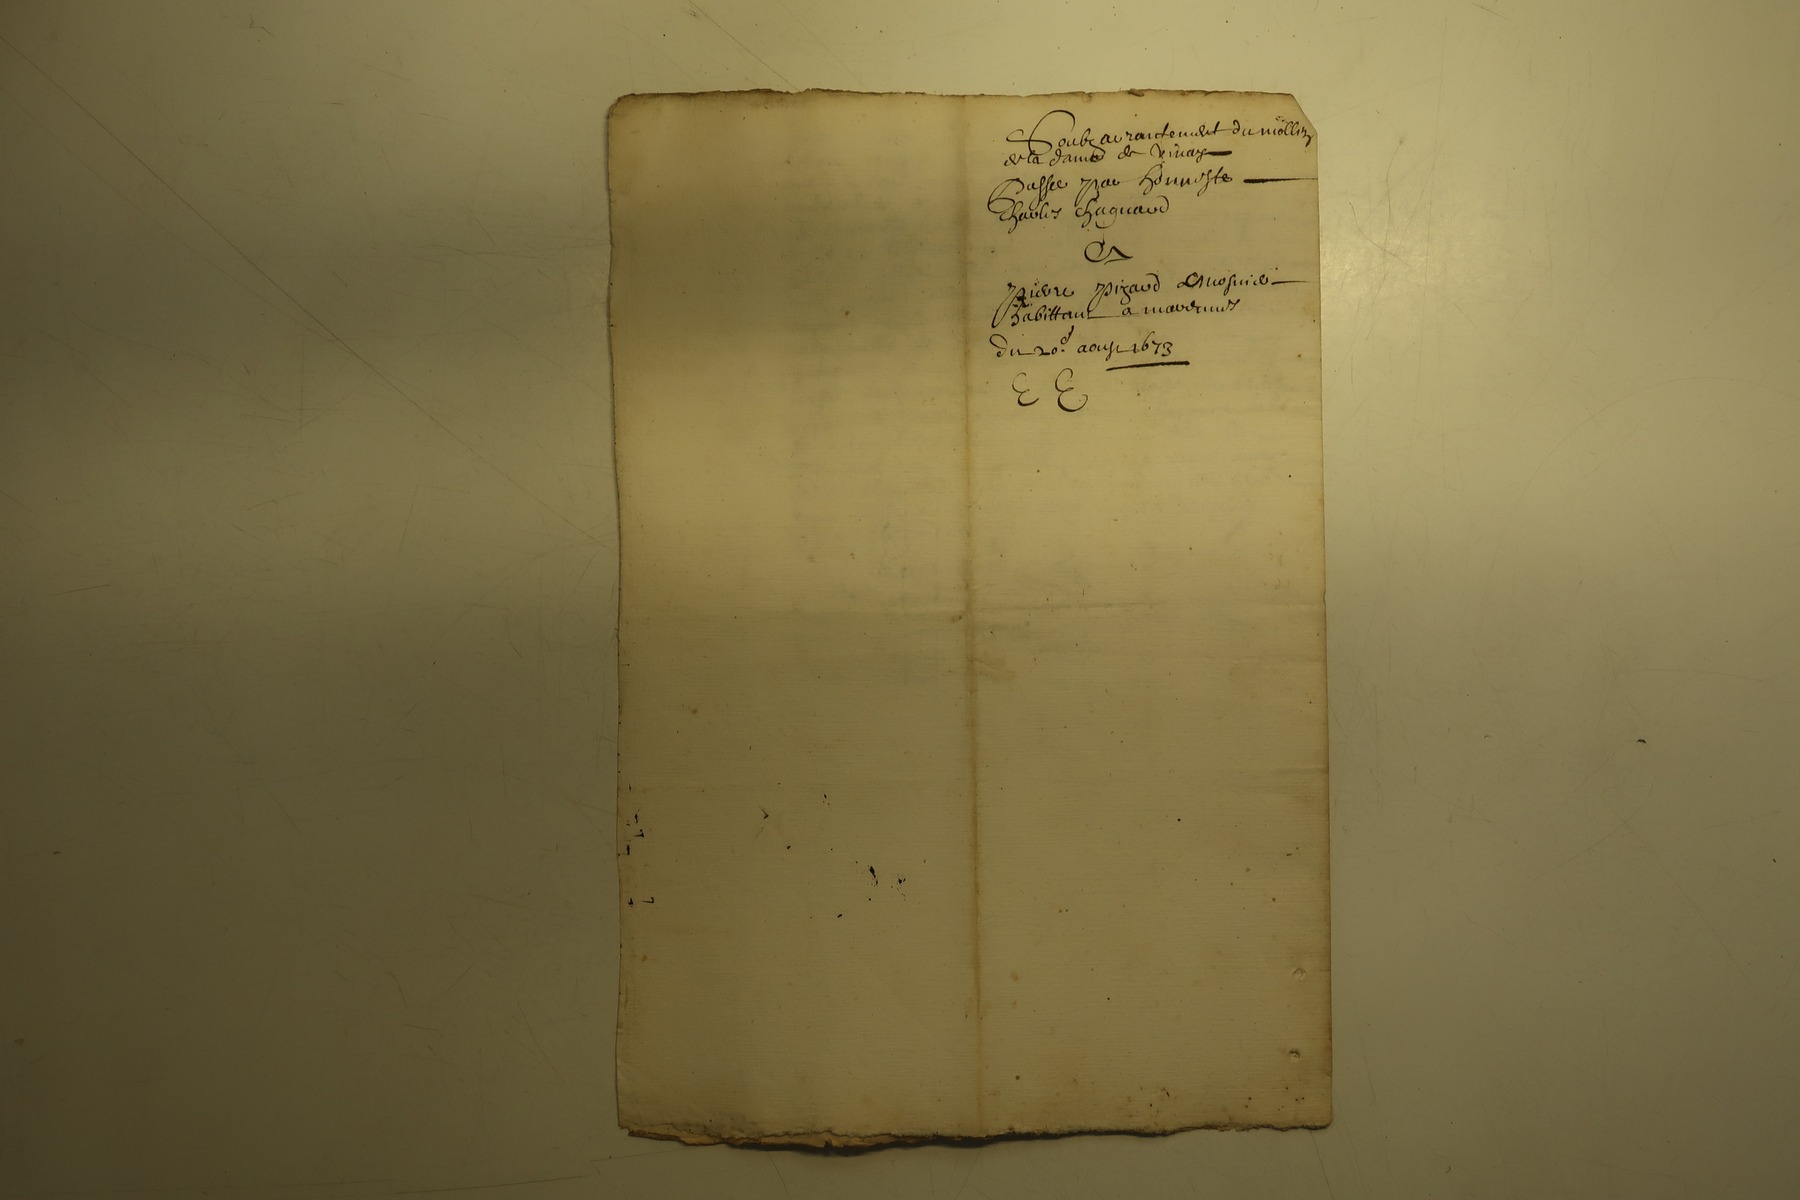 Soubz arrantement du mollin
de la dame de vinay
Passé par honneste
Charles Chagnard
A
pierre pizard mosnier
habittant a
du 20.e aoust 1673
E E